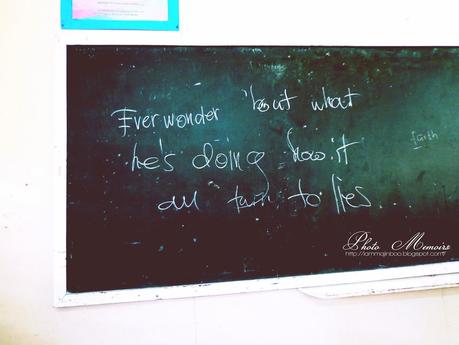 Ever wonder 'bout what
he's doing how it
all turn to lies...
faith
Photo Memoirs
http://iammajinboo.blogspot.com/